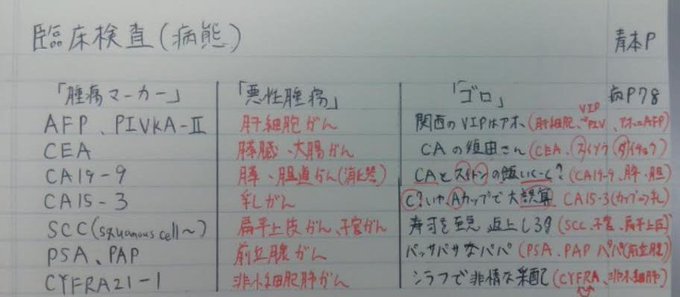 臨床検査(病態) 青本P
「腫瘍マーカー」 「悪性腫瘍」 「ゴロ」 病P78
AFP、PIVKA-Ⅱ 肝細胞がん 関西のVIPはアホ(肝細胞、VIP→PIV、アホ=AFP)
CEA 膵臓、大腸がん CAの短田さん(CEA、スイゾウ、ダイチョウ)
CA19-9 膵・胆道がん(消化器) CAとスイトンの飯いく〜?(CA19-9、膵・胆)
CA15-3 乳がん C?いや、Aカップで大誤算 CA15-3(カップ→乳)
SCC(squamous cell~) 扁平上皮がん、子宮がん 寿司を至急 返上しろ(SCC、子宮、扁平上皮)
PSA、PAP 前立腺がん パッサパサなパパ(PSA、PAP パパ(前立腺))
CYFRA21-1 非小細胞肺がん シラフで非情な采配(CYFRA、非小細胞肺)